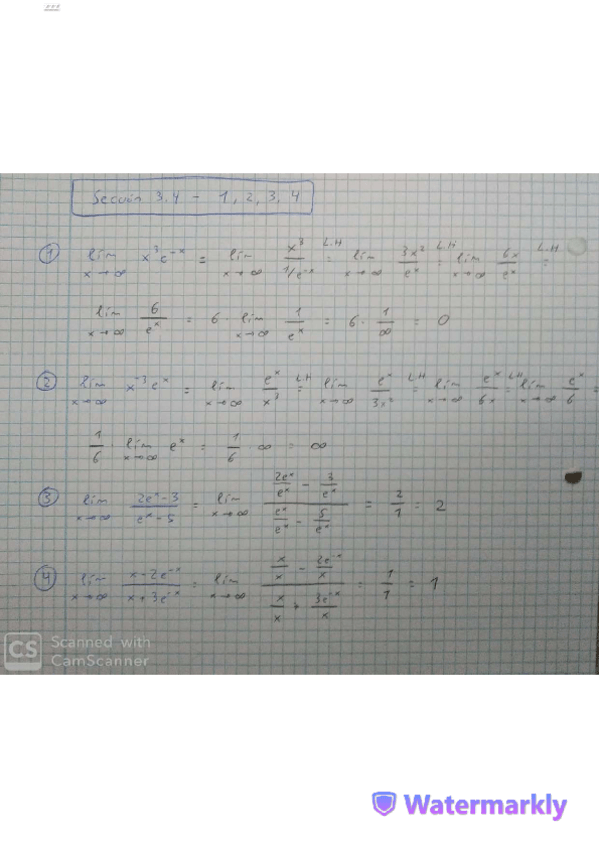 Section 3.4 - 1, 2, 3, 4
① lim x→∞ x³e⁻ˣ = lim x→∞ x³/(1/e⁻ˣ) L.H = lim x→∞ 3x²/eˣ L.H = lim x→∞ 6x/eˣ L.H =
lim x→∞ 6/eˣ = 6 · lim x→∞ 1/eˣ = 6 · 1/∞ = 0
② lim x→∞ x⁻³eˣ = lim x→∞ eˣ/x³ L.H = lim x→∞ eˣ/3x² L.H = lim x→∞ eˣ/6x L.H = lim x→∞ eˣ/6 =
1/6 · lim x→∞ eˣ = 1/6 · ∞ = ∞
③ lim x→∞ (2eˣ-3)/(eˣ-5) = lim x→∞ (2eˣ/eˣ - 3/eˣ)/(eˣ/eˣ - 5/eˣ) = 2/1 = 2
④ lim x→∞ (x-2e⁻ˣ)/(x+3e⁻ˣ) = lim x→∞ (x/x - 2e⁻ˣ/x)/(x/x + 3e⁻ˣ/x) = 1/1 = 1
CS Scanned with
CamScanner
Watermarkly